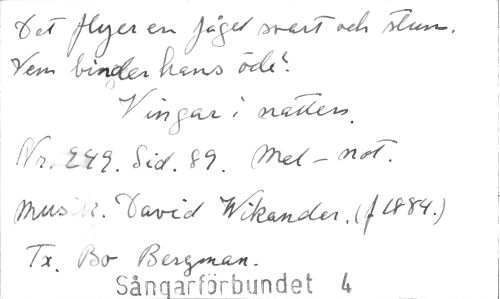 Det flyer en fågel svart och stum.
Vem binder hans öde?
Vingar i natten.
Nr. 249. Sid. 89. Mel-not.
Musik. David Wikander. (f 1884.)
Tx. Bo Bergman.
Sångarförbundet 4